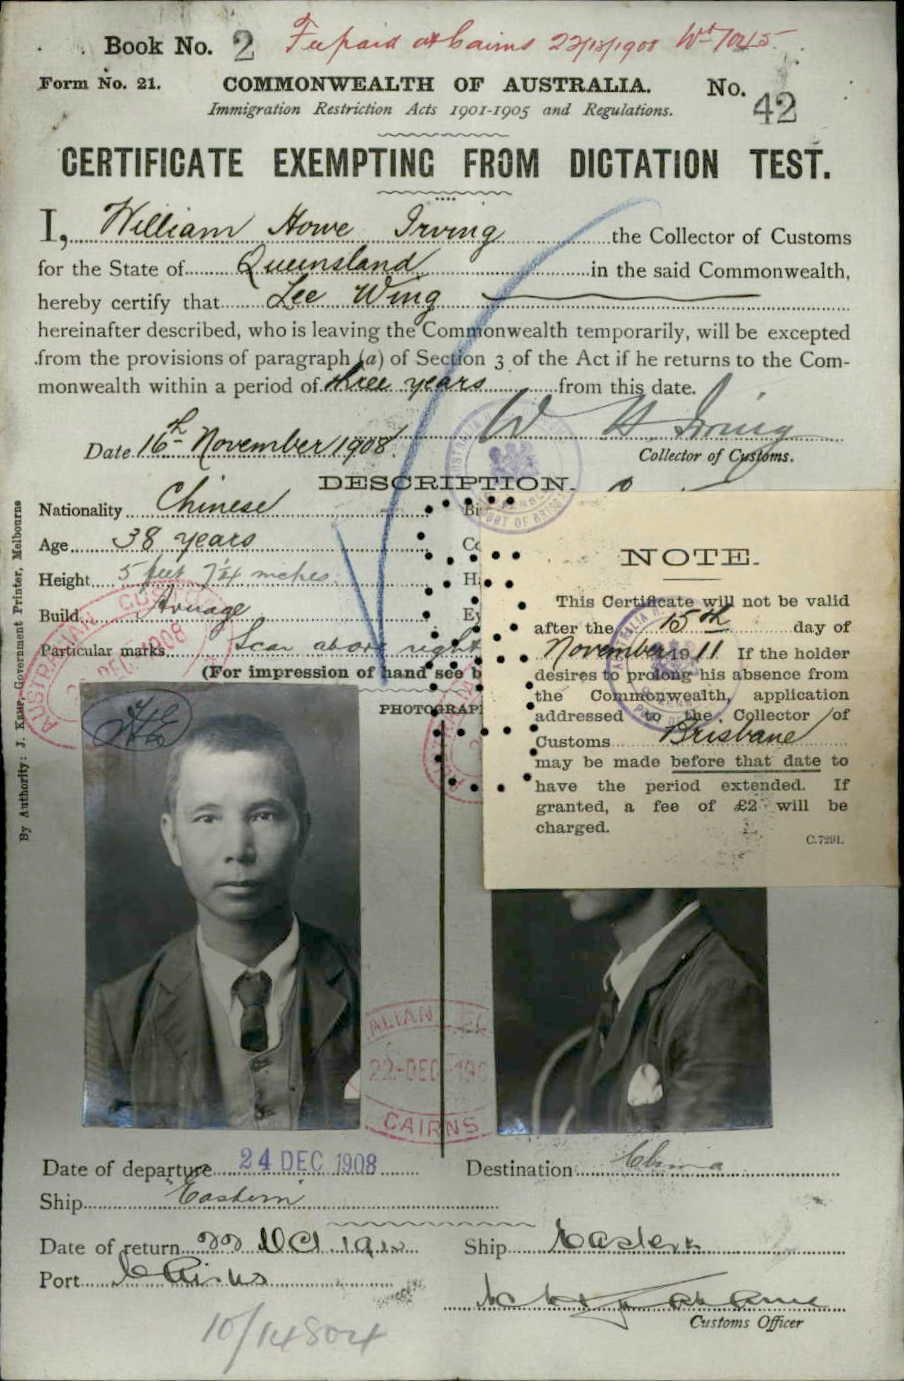 Book No. 2 Fee paid at Cairns 22/12/1908
Form No. 21. COMMONWEALTH OF AUSTRALIA. No. 42
Immigration Restriction Acts 1901-1905 and Regulations.
CERTIFICATE EXEMPTING FROM DICTATION TEST.
I, William Howe Irving the Collector of Customs
for the State of Queensland in the said Commonwealth,
hereby certify that Lee Wing
hereinafter described, who is leaving the Commonwealth temporarily, will be excepted
from the provisions of paragraph (a) of Section 3 of the Act if he returns to the Com-
monwealth within a period of three years from this date.
W H Irving
Date 16th November 1908.
Collector of Customs.
DESCRIPTION.
Nationality Chinese
Age 38 years
Height 5 feet inches
Build Average
Particular marks Scar above right
(For impression of hand see b
PHOTOGRAP
NOTE.
This Certificate will not be valid
after the 15th day of
November 1911 If the holder
desires to prolong his absence from
the Commonwealth, application
addressed to the Collector of
Customs Brisbane
may be made before that date to
have the period extended. If
granted, a fee of £2 will be
charged.
C.7291.
By Authority: J. Kemp, Government Printer, Melbourne
AUSTRALIAN CUSTOMS
DEC 1908
22-DEC-190
CAIRNS
Date of departure 24 DEC 1908 Destination China
Ship Eastern
Date of return 22 Oct 1910 Ship Eastern
Port Cairns
Customs Officer
10/14804